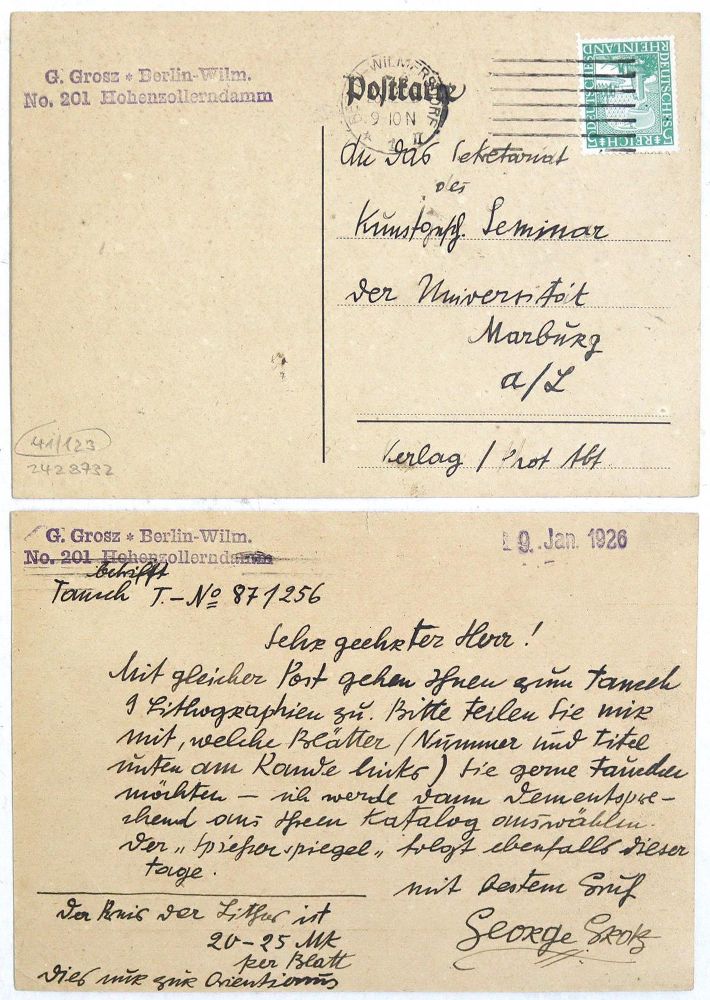 G. Grosz * Berlin-Wilm.
No. 201 Hohenzollerndamm
WILMERSDORF
9 10 N
Postkarte
DEUTSCHES REICH
RHEINLAND
5
An das Seketariat
des
Kunstgesch. Seminar
der Universität
Marburg
a/L
Verlag / Phot Abt.
41/123
2428932
G. Grosz * Berlin-Wilm.
No. 201 Hohenzollerndamm
9. Jan. 1926
betrifft
Tausch T.-No 871256
Sehr geehrter Herr!
Mit gleicher Post gehen Ihnen zum Tausch
9 Lithographien zu. Bitte teilen Sie mir
mit, welche Blätter (Nummer und Titel
unten am Rande links) Sie gerne tauschen
möchten – ich werde dann dementspre-
chend aus Ihrem Katalog auswählen.
Der „Spiesserspiegel" folgt ebenfalls dieser
Tage.
mit bestem Gruß
George Grosz
Der Preis der Lithos ist
20-25 Mk
per Blatt
dies nur zur Orientierung